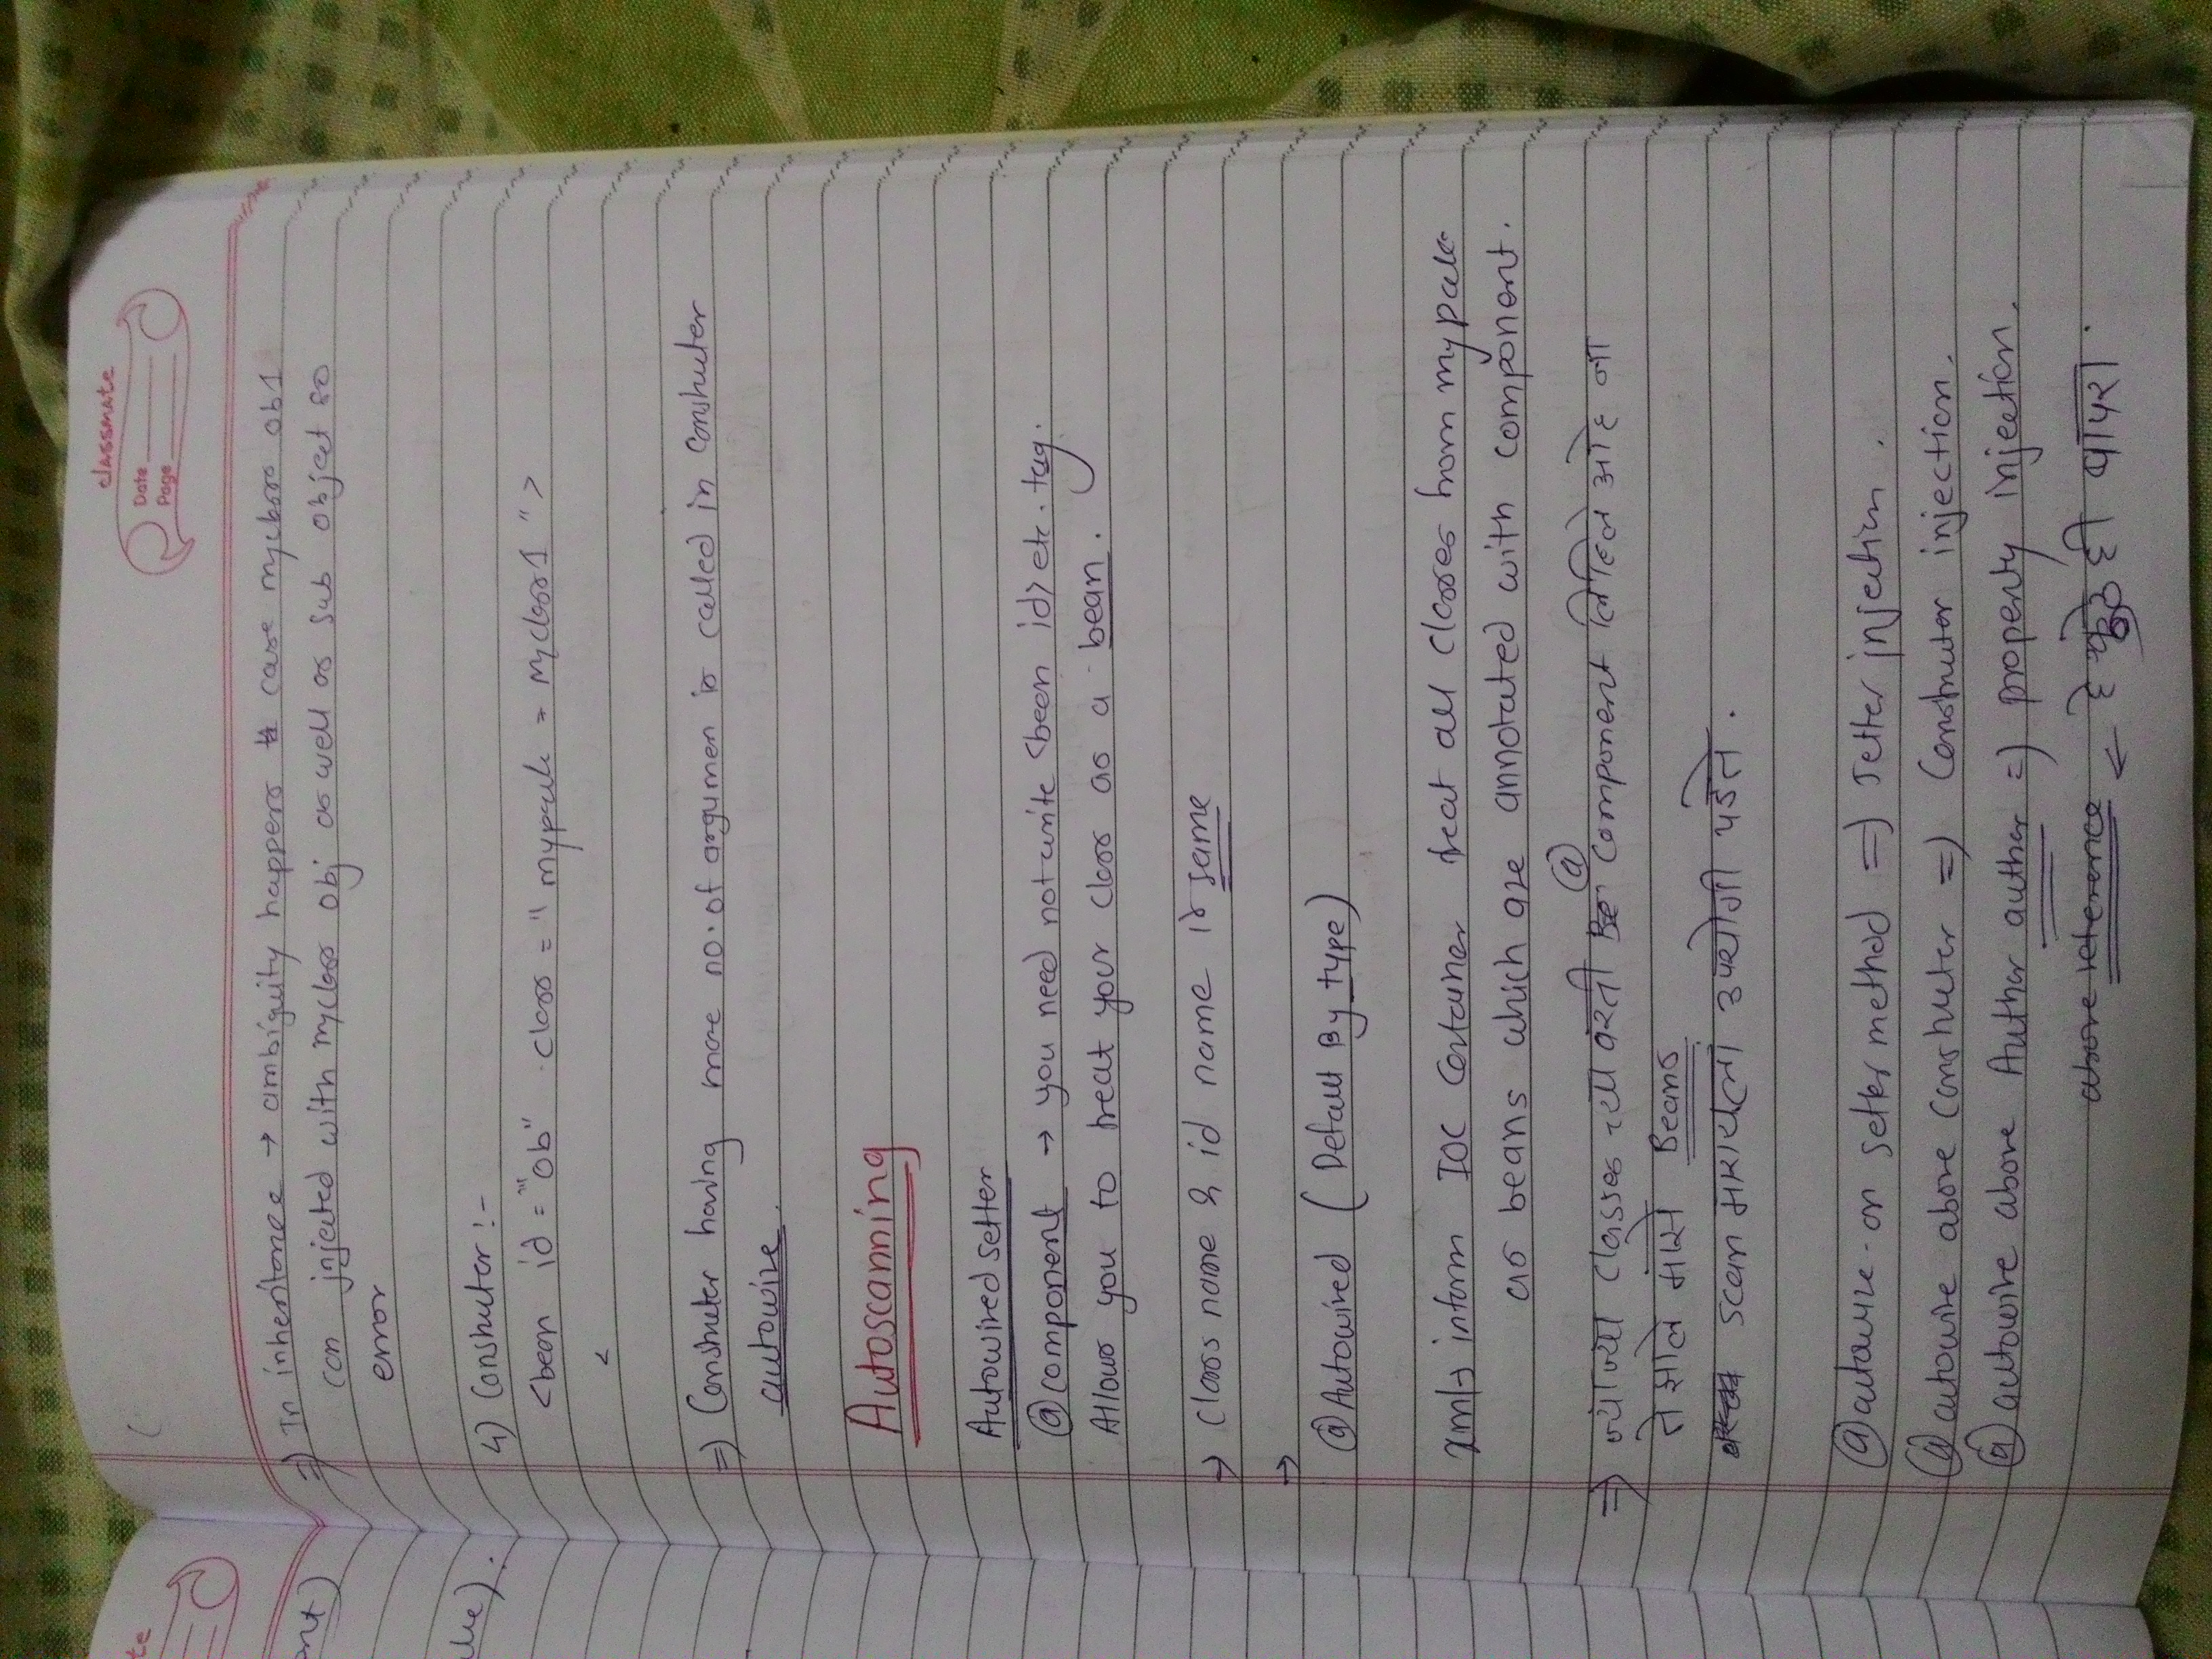 te
classmate
Date
Page
ont)
⇒ In inheritance → ambiguity happens case myclass ob1
can injected with myclass obj as well as sub object so
error
4) Constructer :-
<bean id = "ob" class = " mypack = Myclass1 ">
<
⇒ Constructer having more no. of argumen is called in Constructer
autowire.
Autoscanning
Autowired setter
@component → you need not write <bean id> etc. tag.
Allows you to treat your class as a bean.
→ Class name & id name is same
→
@Autowired ( Default By type)
xml→ inform IOC Container treat all classes from mypack
as beans which are annotated with component.
⇒ ज्या ज्या classes च्या वरती @ component लिहिले आहे ना
ते झाले माझे Beans
scan मारायला उपयोगी पडते.
@autowire - on setter method ⇒ Setter injection.
@autowire above constructer ⇒ Constructor injection.
@autowire above Auther auther ⇒ property injection.
above reference ← हे कुठे ही वापरा.